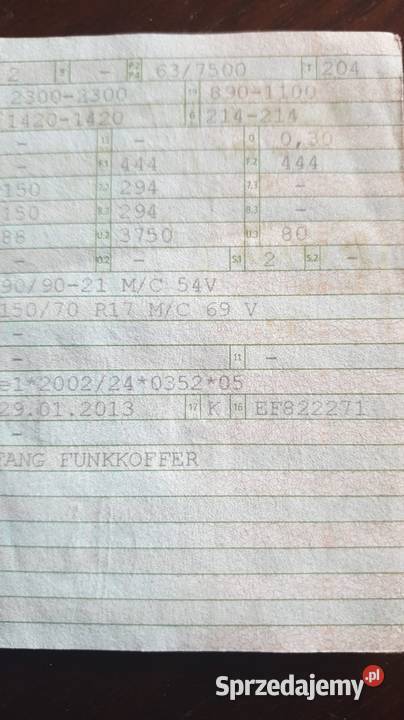 2 9 - P.2 P.4 63/7500 T 204
2300-2300 19 890-1100
1420-1420 G 214-214
- 13 - Q 0,30
- F.1 444 F.2 444
150 7.2 294 7.3 -
150 8.2 294 8.3 -
88 U.2 3750 U.3 80
- O.2 - S.1 2 S.2 -
90/90-21 M/C 54V
150/70 R17 M/C 69 V
-
- 11 -
e1*2002/24*0352*05
29.01.2013 17 K 16 EF822271
-
FANG FUNKKOFFER
Sprzedajemy.pl